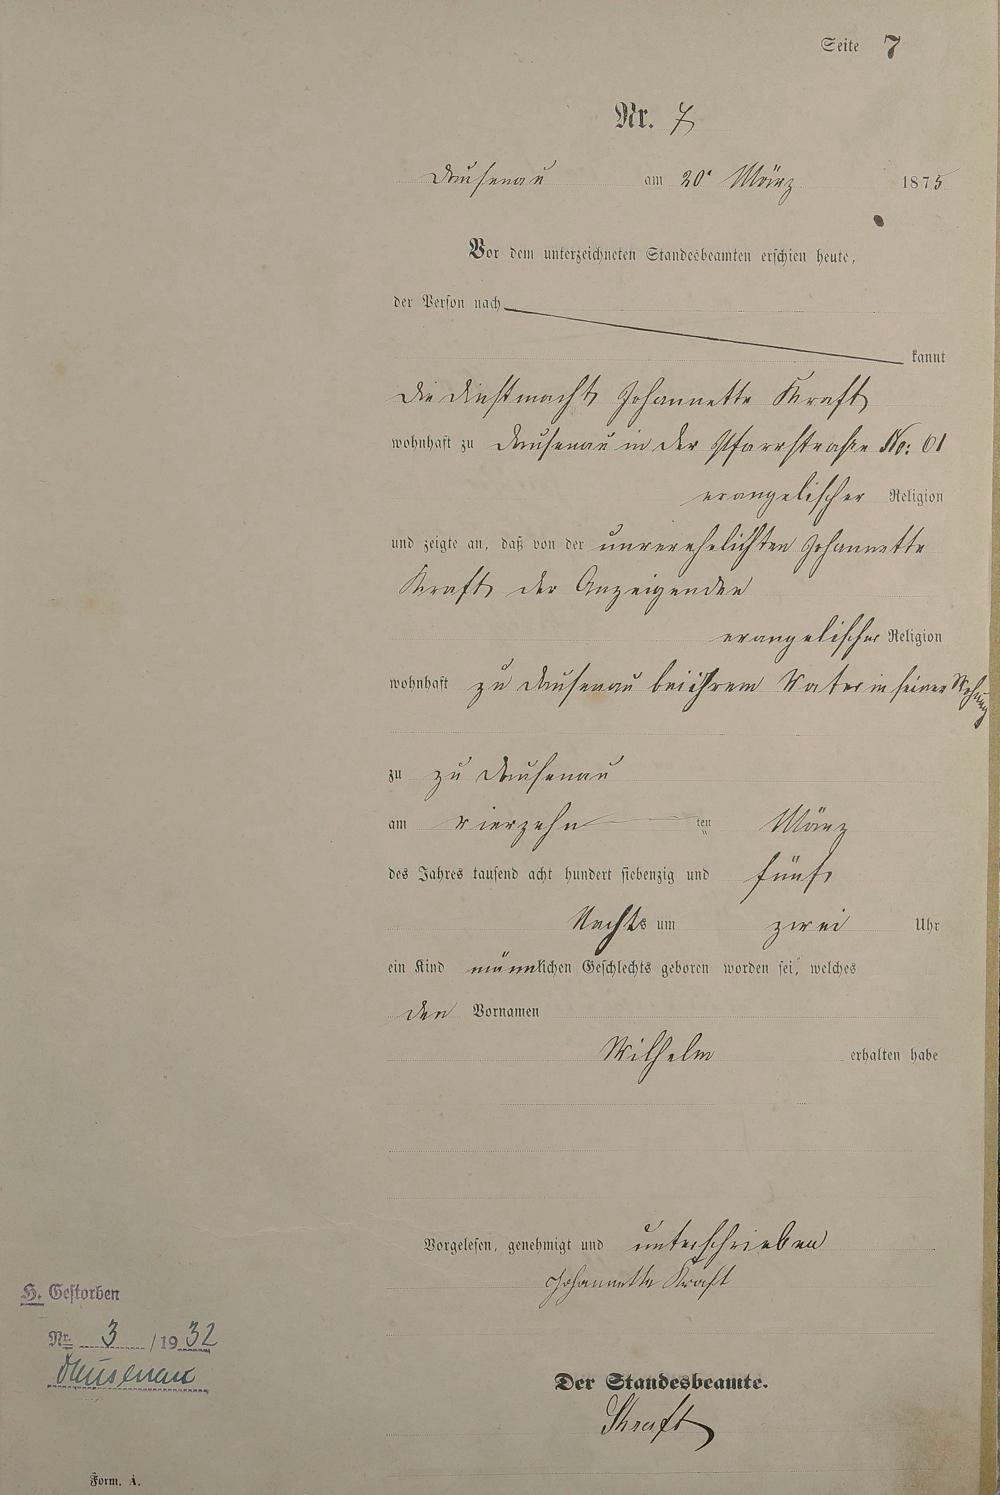 Seite 7
Nr. 7
Dausenau am 20ᵗ März 1875
Vor dem unterzeichneten Standesbeamten erschien heute,
der Person nach
kannt
die Dinstmacht Johannette Kraft
wohnhaft zu Dausenau in der Pfarrstraße No: 61
evangelischer Religion
und zeigte an, daß von der unverehelichten Johannette
Kraft der Anzeigenden
evangelischer Religion
wohnhaft zu Dausenau bei ihrem Vater in seiner
zu zu Dausenau
am vierzehn ten März
des Jahres tausend acht hundert siebenzig und fünf
Nachts um zwei Uhr
ein Kind männlichen Geschlechts geboren worden sei, welches
den Vornamen
Wilhelm erhalten habe
Vorgelesen, genehmigt und unterschrieben
Johannette Kraft
H. Gestorben
Nr. 3 /1932
Dausenau
Der Standesbeamte.
Form. A.